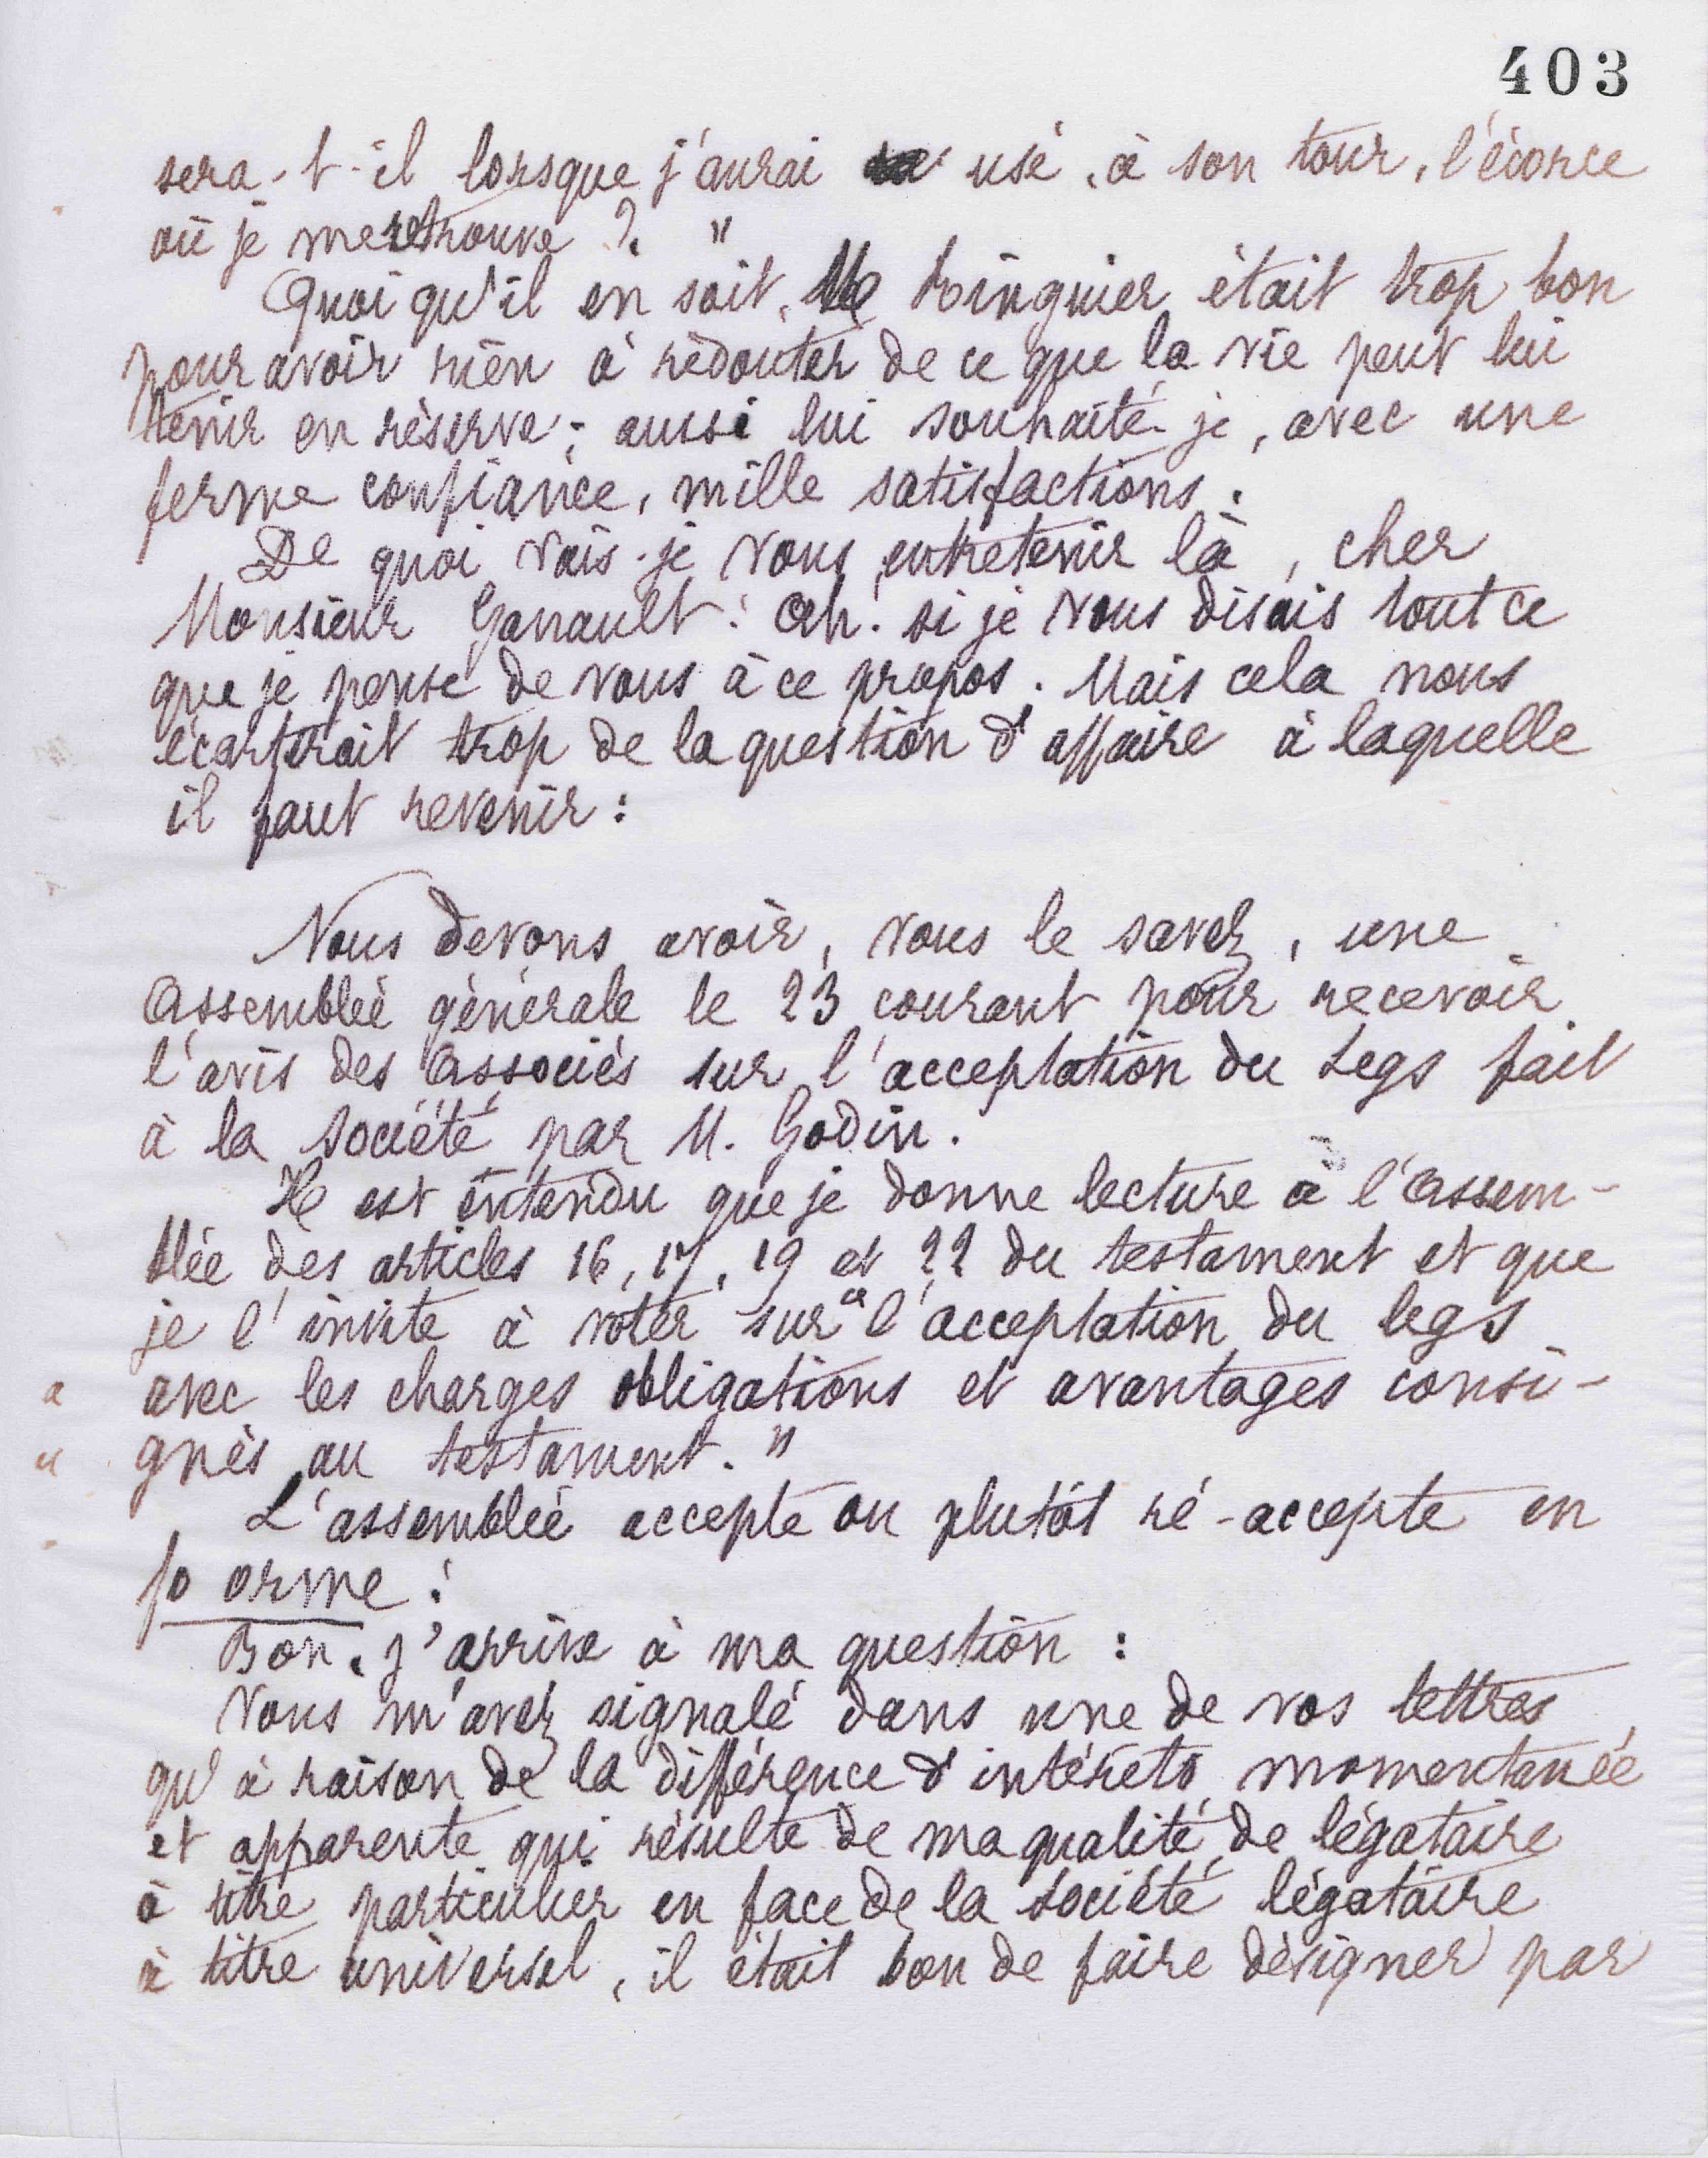 403
sera-t-il lorsque j'aurai usé, à son tour, l'écorce
où je me retrouve ? "
Quoiqu'il en soit, Me Ringuier était trop bon
pour avoir rien à rédouter de ce que la vie peut lui
tenir en réserve ; aussi lui souhaité-je, avec une
ferme confiance, mille satisfactions.
De quoi vais-je vous entretenir là, cher
Monsieur Ganault ! Ah ! si je vous disais tout ce
que je pense de vous à ce propos. Mais cela nous
écarterait trop de la question d'affaire à laquelle
il faut revenir :
Nous devons avoir, vous le savez, une
Assemblée générale le 23 courant pour recevoir
l'avis des Associés sur l'acceptation du Legs fait
à la Société par M. Godin.
Il est entendu que je donne lecture à l'Assem-
blée des articles 16, 17, 19 et 22 du testament et que
je l'invite à voter sur " l'acceptation du legs
" avec les charges obligations et avantages consi-
" gnés au testament. "
L'assemblée accepte ou plutôt ré-accepte en
fo orme :
Bon. j'arrive à ma question :
Vous m'avez signalé dans une de vos lettres
qu'à raison de la différence d'intérêts momentanée
et apparente qui résulte de ma qualité de légataire
à titre particulier en face de la Société légataire
à titre universel, il était bon de faire désigner par